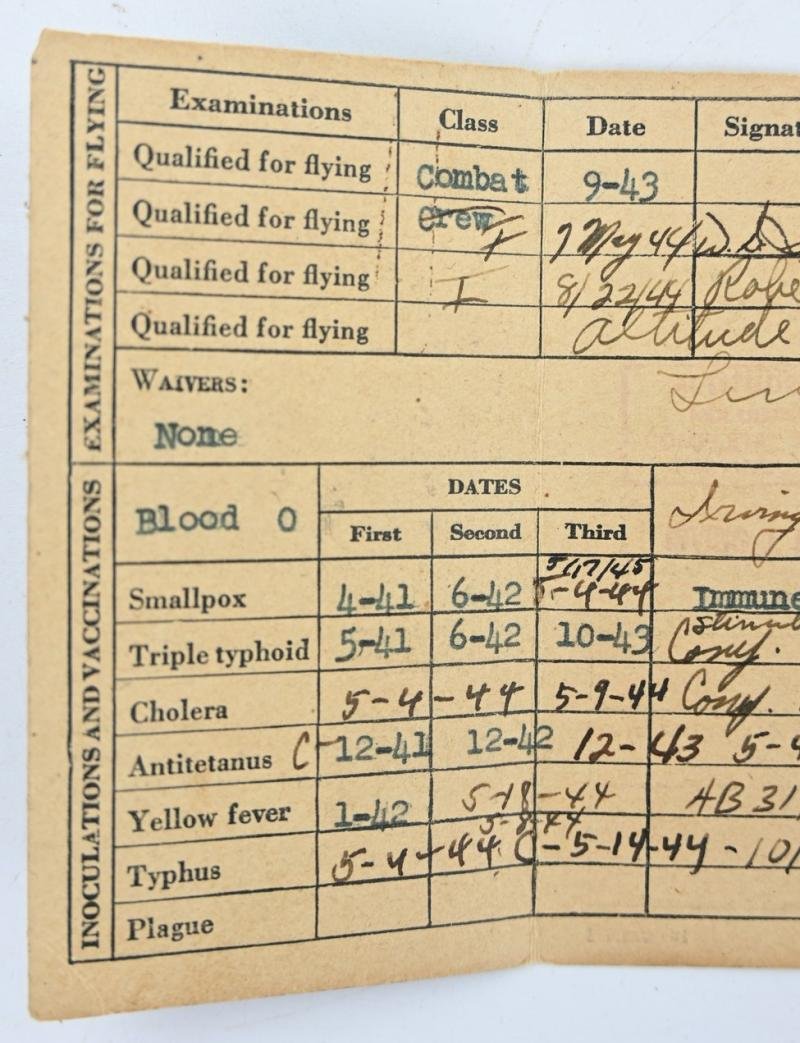 EXAMINATIONS FOR FLYING
Examinations Class Date Signat
Qualified for flying Combat 9-43
Qualified for flying Crew I 7 May 44 W. D.
Qualified for flying I 8/22/44 Robe
Qualified for flying altitude
WAIVERS:
None
INOCULATIONS AND VACCINATIONS
Blood O DATES Irving
First Second Third
5/17/45
Smallpox 4-41 6-42 5-4-44 Immune
Triple typhoid 5-41 6-42 10-43
Cholera 5-4-44 5-9-44
Antitetanus C- 12-41 12-42 12-43 5-4
Yellow fever 1-42 5-18-44 AB 31
5-8-44
Typhus 5-4-44 C-5-14-44-101
Plague